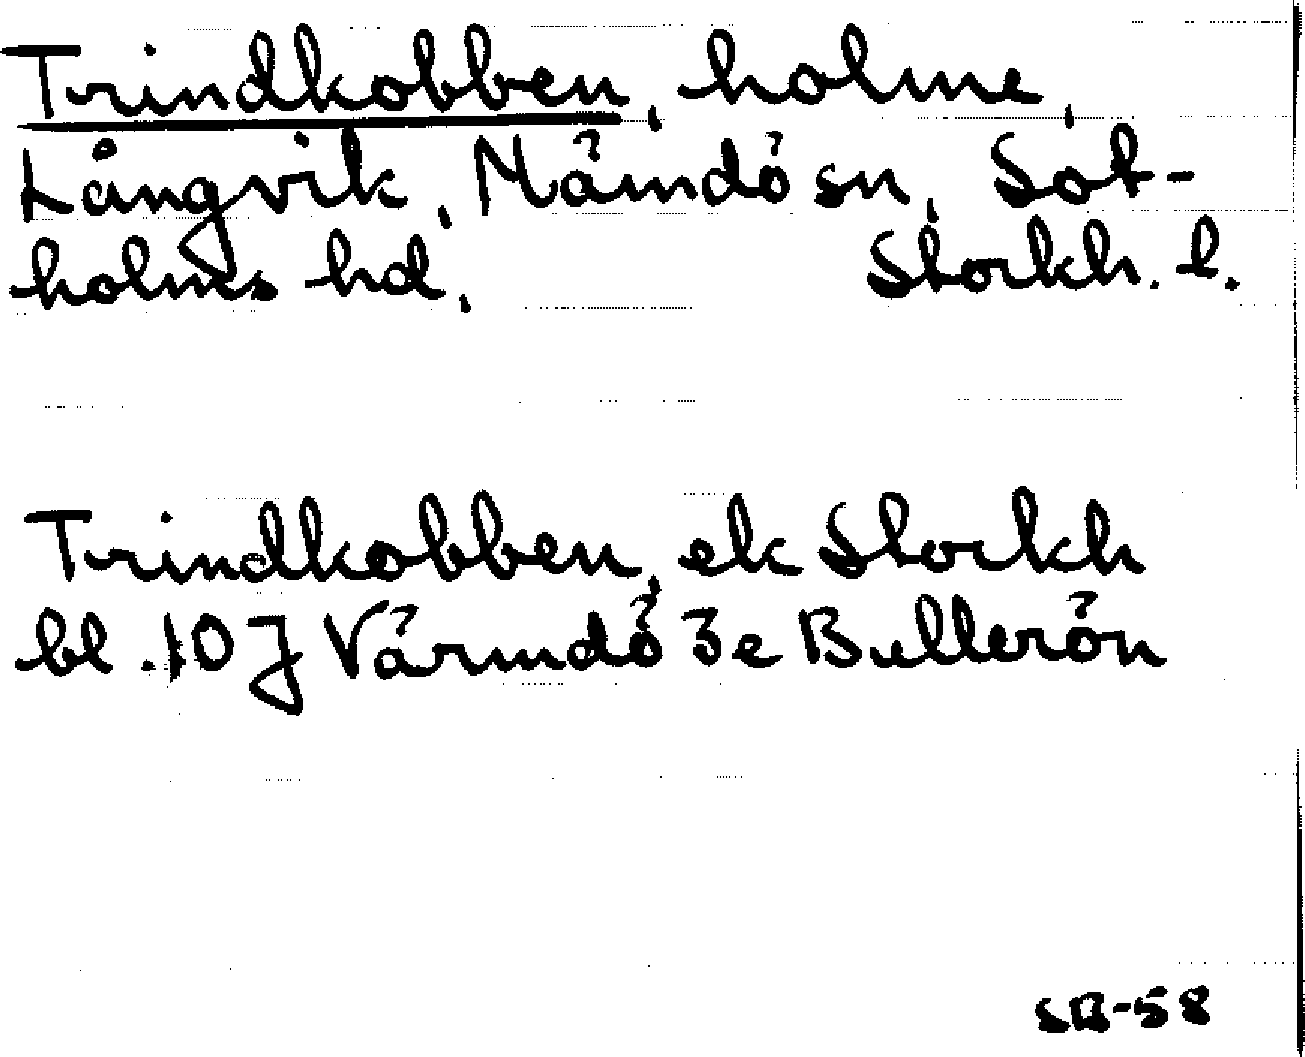 Trindkobben, holme,
Långvik, Nämdö sn, Sot-
holms hd, Stockh. l.
Trindkobben, ek Stockh
bl. 10J Värmdö 3e Bullerön
SB-58